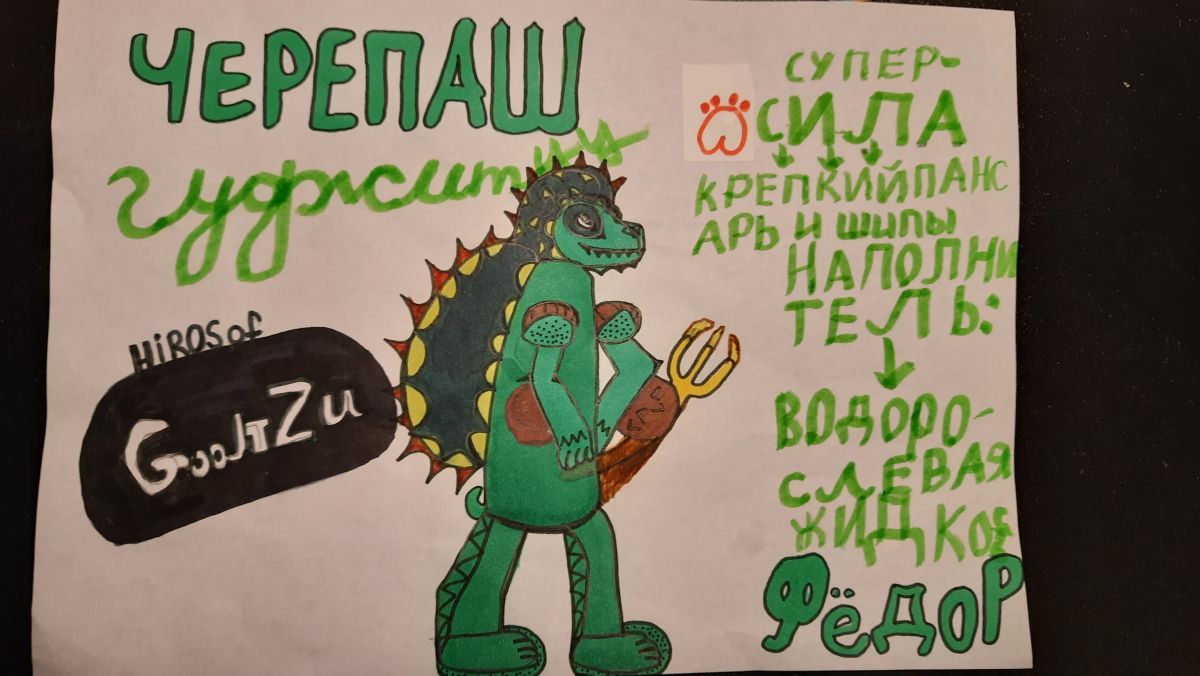 ЧЕРЕПАШ
гуджитцу
HiROS of
GooJTZu
СУПЕР-
СИЛА
КРЕПКИЙ ПАНС
АРЬ И ШИПЫ
НАПОЛНИ
ТЕЛЬ:
ВОДОРО-
СЛЕВАЯ
ЖИДКОS
ФЁДОР